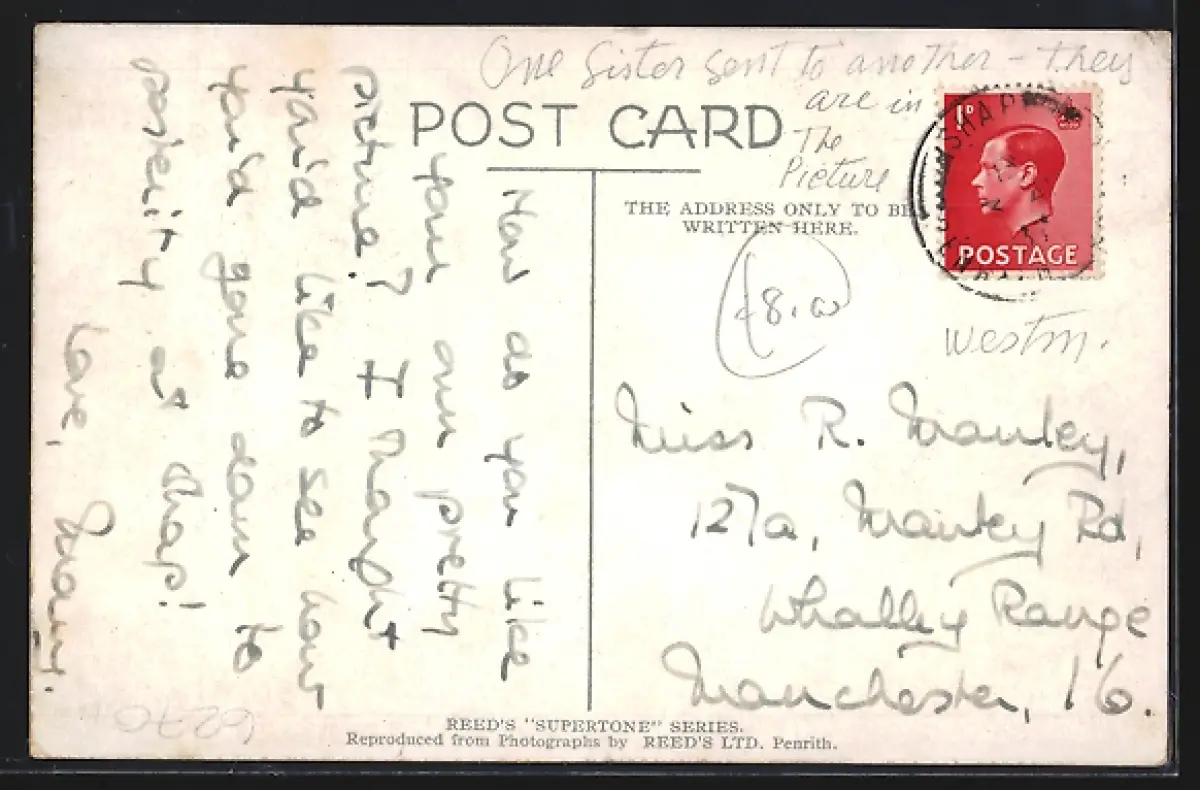 One Sister sent to another - they
are in
The
Picture
POST CARD
THE ADDRESS ONLY TO BE
WRITTEN HERE.
1D
POSTAGE
SHAP
£8.00
Westm.
How do you like
your our pretty
picture? I thought
you'd like to see how
you'd gone down to
posterity at Shap!
Love, Mary.
Miss R. Manley,
127a, Manley Rd,
Whalley Range
Manchester, 16.
6270
REED'S "SUPERTONE" SERIES.
Reproduced from Photographs by REED'S LTD. Penrith.